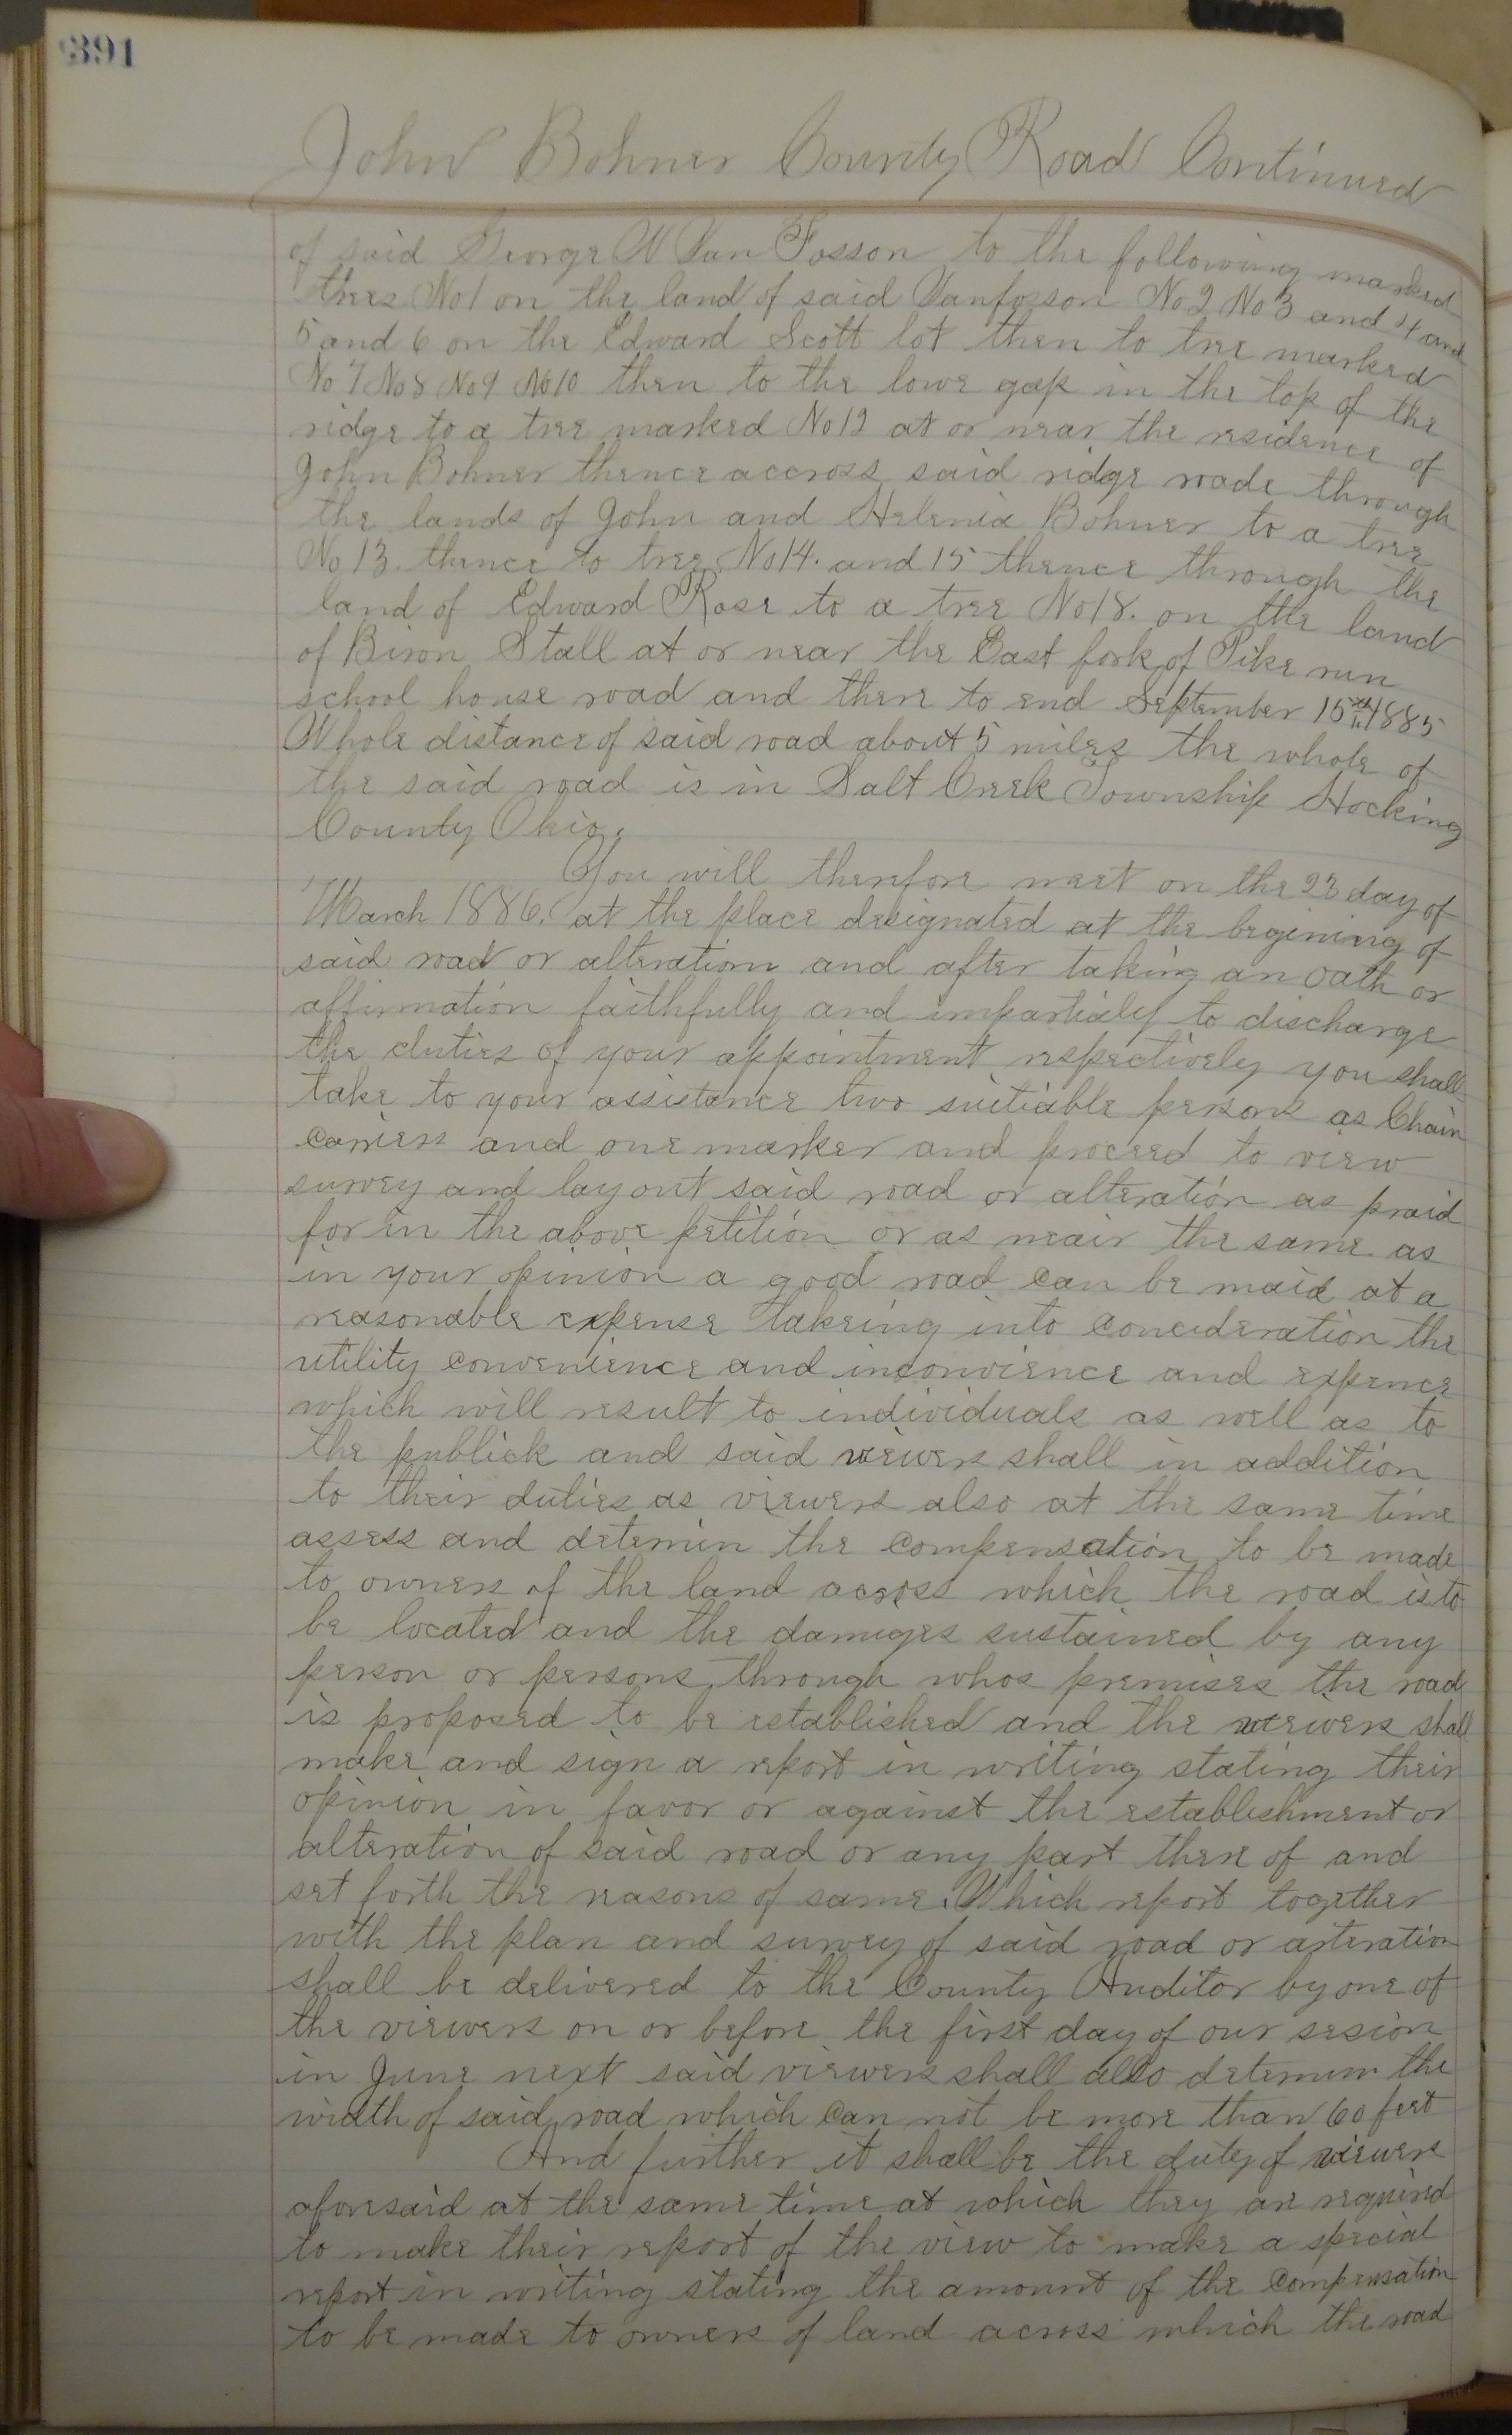 391
John Bohner County Road Continued
of said George W Van Fosson to the following marked
trees No1 on the land of said Vanfosson No2 No3 and 4 and
5 and 6 on the Edward Scott lot then to tree marked
No7 No8 No9 No10 then to the lowe gap in the top of the
ridge to a tree marked No12 at or near the residence of
John Bohner thence accross said ridge rode through
the lands of John and Helenia Bohner to a tree
No13. thence to tree No14. and 15 thence through the
land of Edward Rose to a tree No18. on the land
of Biron Stall at or near the East fork of Pike run
school house road and there to end September 15th 1885
Whole distance of said road about 5 miles the whole of
the said road is in Salt Creek Township Hocking
County Ohio.
You will therefore meet on the 23 day of
March 1886. at the place designated at the begining of
said road or alteration and after taking an oath or
affirmation faithfully and impartialy to discharge
the duties of your appointment respectively you shall
take to your assistance two suitiable persons as Chain
Carriers and one marker and proceed to view
survey and lay out said road or alteration as praid
for in the above petition or as neair the same as
in your opinion a good road can be maid at a
reasonable expense takeing into concideration the
utility convenience and inconvience and expence
which will result to individuals as well as to
the publick and said viewers shall in addition
to their duties as viewers also at the same time
assess and detemin the compensation to be made
to owners of the land across which the road is to
be located and the damages sustained by any
person or persons through whos premises the road
is proposed to be established and the viewers shall
make and sign a report in writing stating their
opinion in favor or against the establishment or
alteration of said road or any part there of and
set forth the reasons of same. Which report together
with the plan and survey of said road or arteration
shall be delivered to the County Auditor by one of
the viewers on or before the first day of our sesion
in June next said viewers shall also detemin the
width of said road which can not be more than 60 feet
And further it shall be the duty of viewers
aforesaid at the same time at which they are required
to make their report of the view to make a special
report in writing stating the amount of the compensation
to be made to owners of land across which the road